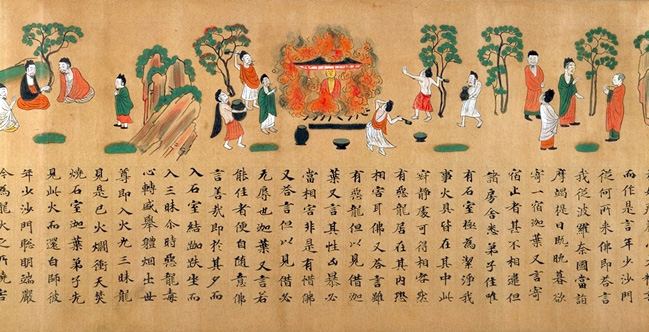 而作是言年少沙門
從何所来佛即答言
我從波羅奈國當詣
摩竭提日既晩暮欲
寄一宿迦葉又言寄
宿止者甚不相違但
諸房舎悉弟子住唯
有石室極為潔淨我
事火具皆在其中此
寂静處可得相容然
有惡龍居在其内恐
相害耳佛又答言雖
有惡龍但以見借迦
葉又言其性凶暴必
當相害非是有惜佛
又答言但以見借必
無辱也迦葉又言若
能住者便自随意佛
言善哉即於其夕而
入石室結跏趺坐而
入三昧尒時惡龍毒
心轉盛舉體烟出世
尊即入火光三昧龍
見是已火爓衝天焚
燒石室迦葉弟子先
見此火而還白師彼
年少沙門聡明端嚴
今為龍火之所燒害